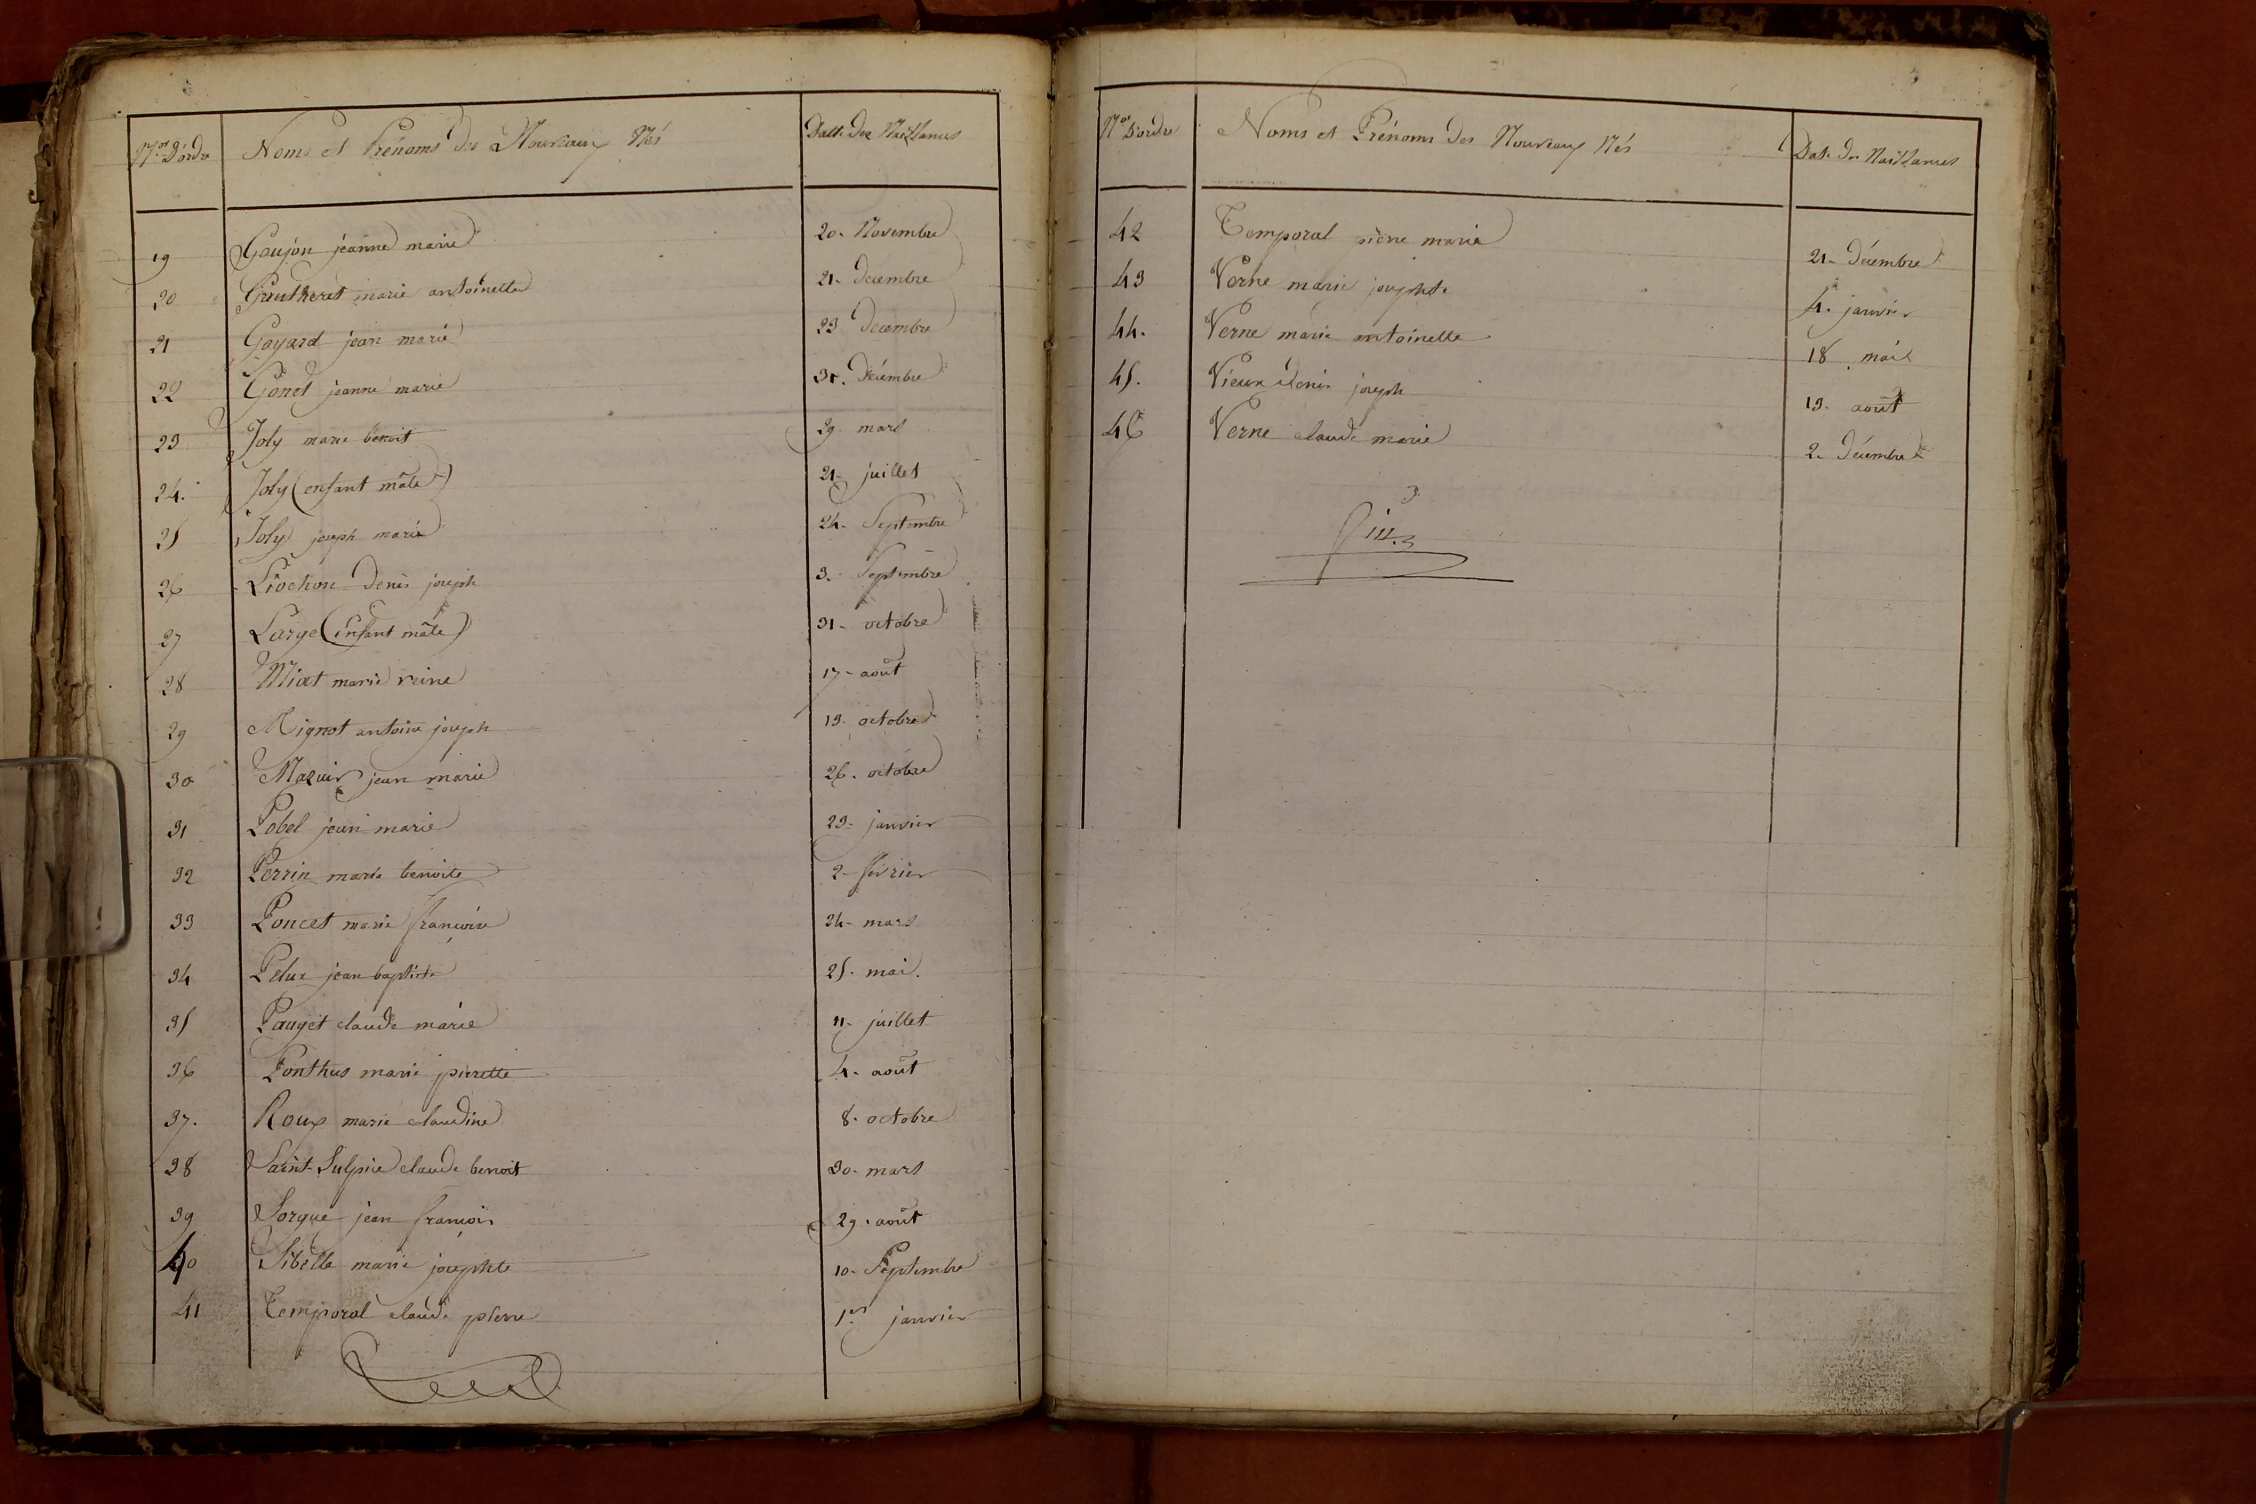 Nos D'ordre Noms et Prénoms des Nouveaux Nés Date des Naissances
19 Goujon jeanne marie 20. Novembre
20 Gentheret marie antoinette 21. Decembre
21 Goyard jean marie 23 Decembre
22 Gonet jeanne marie 30. Décembre
23 Joly marie benoit 29. mars
24. Joly (enfant mâle) 21. juillet
25 Joly joseph marie 24. Septembre
26 Liochon Denis joseph 3. Septembre
27 Large (enfant mâle) 31. octobre
28 Miat marie reine 17. août
29 Mignot antoine joseph 13. octobre
30 Mazuir jean marie 26. octobre
31 Pobel jean marie 23. janvier
32 Perrin marie benoite 2. février
33 Poncet marie françoise 24. mars
34 Peluz jean baptiste 25. mai.
35 Pauget claude marie 11. juillet
36 Ponthus marie pierrette 4. août
37. Roux marie claudine 8. octobre
38 Saint-Sulpice claude benoit 30. mars
39 Sorgue jean françois 29. août
40 Sibelle marie josephte 10. Septembre
41 Temporal claude pierre 1er janvier
Nos D'ordre Noms et Prénoms des Nouveaux Nés Date des Naissances
42 Temporal pierre marie 21. Décembre
43 Verne marie josephte 4. janvier
44. Verne marie antoinette 18 mai
45. Vieux denis joseph 13. août
46 Verne claude marie 2. Décembre
fin